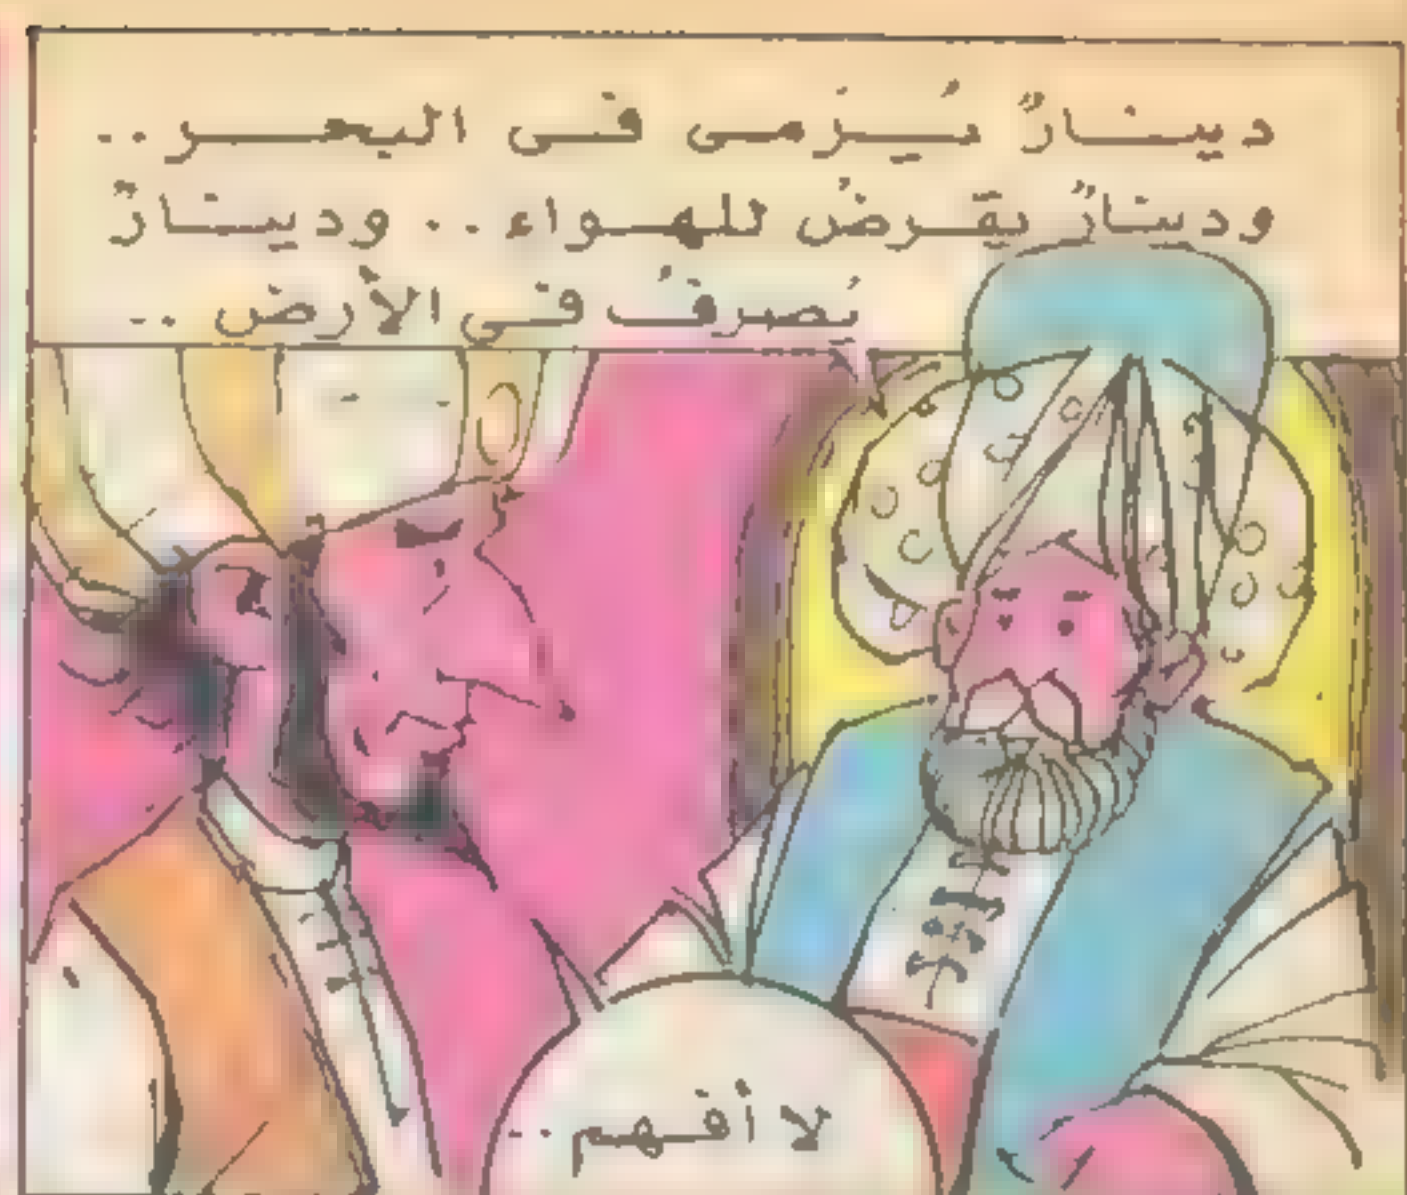 دينارٌ يُرمى فى البحر ..
ودينارٌ يقرضُ للهواء .. ودينارٌ
يُصرفُ في الأرض ..
لا أفهم ..